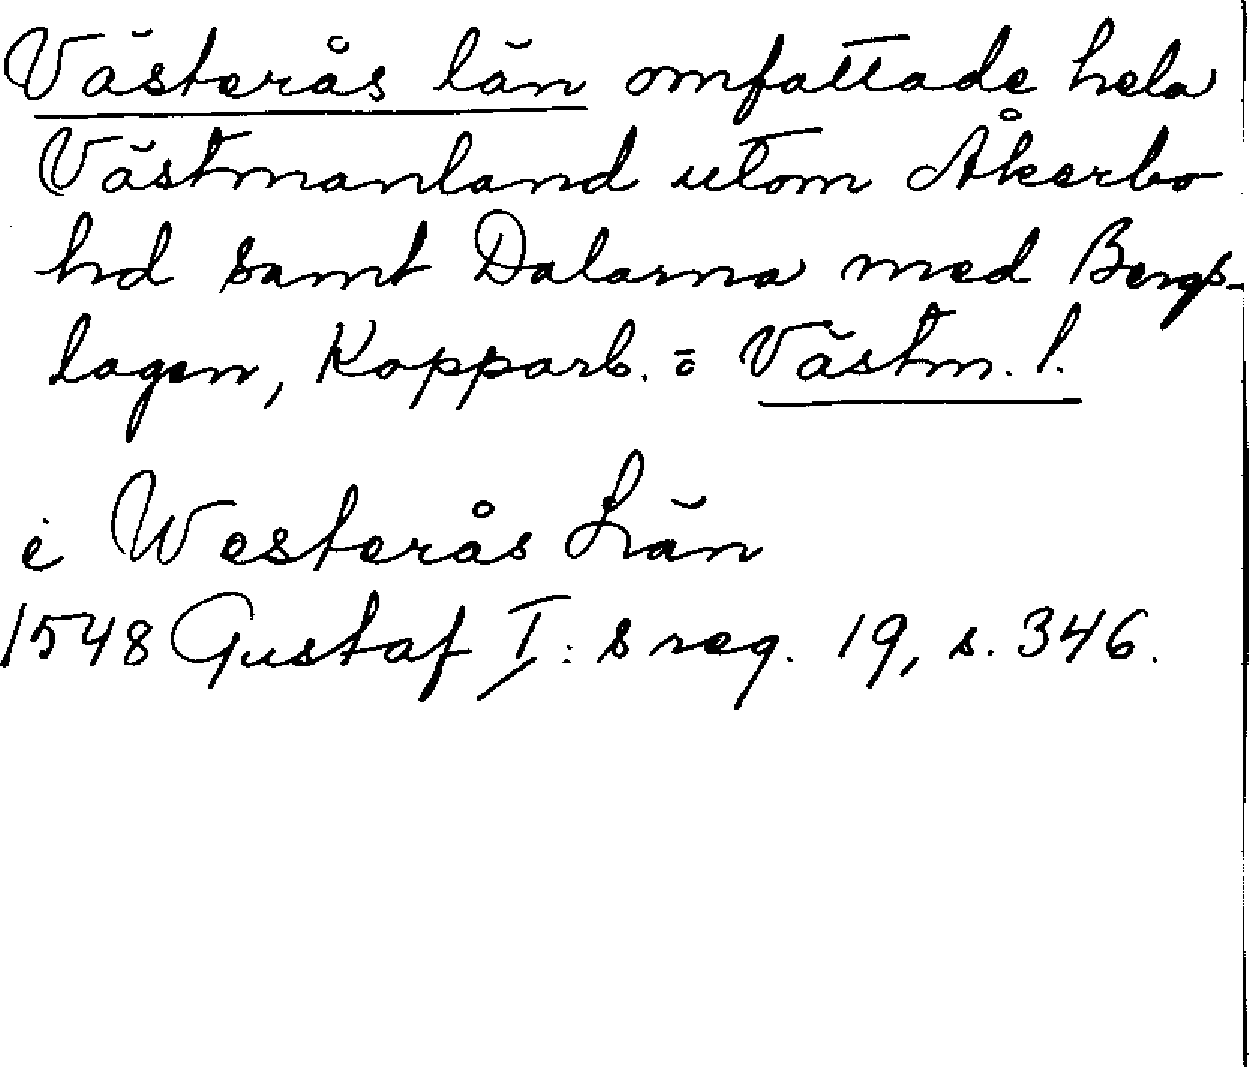 Västerås län omfattade hela
Västmanland utom Åkerbo
hd samt Dalarna med Bergs-
lagen, Kopparb. o Västm. l.
i Westerås Län
1548 Gustaf I:s reg. 19, s. 346.